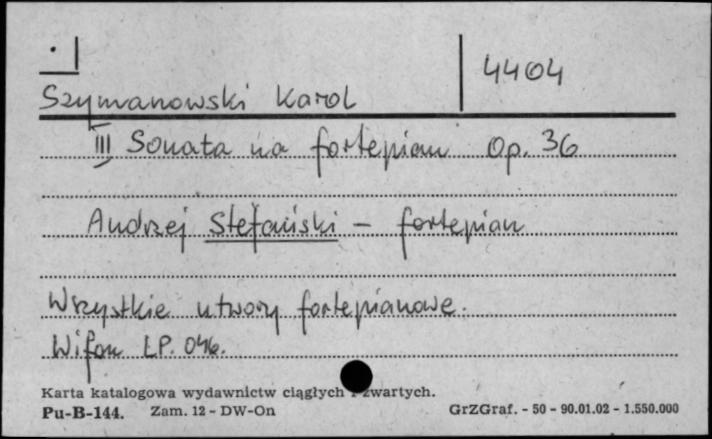 4404
Szymanowski Karol
III Sonata na fortepian Op. 36
Andrzej Stefański - fortepian
Wszystkie utwory fortepianowe.
Wifon LP. 046.
Karta katalogowa wydawnictw ciągłych zwartych.
Pu-B-144. Zam. 12 - DW-On GrZGraf. - 50 - 90.01.02 - 1.550.000